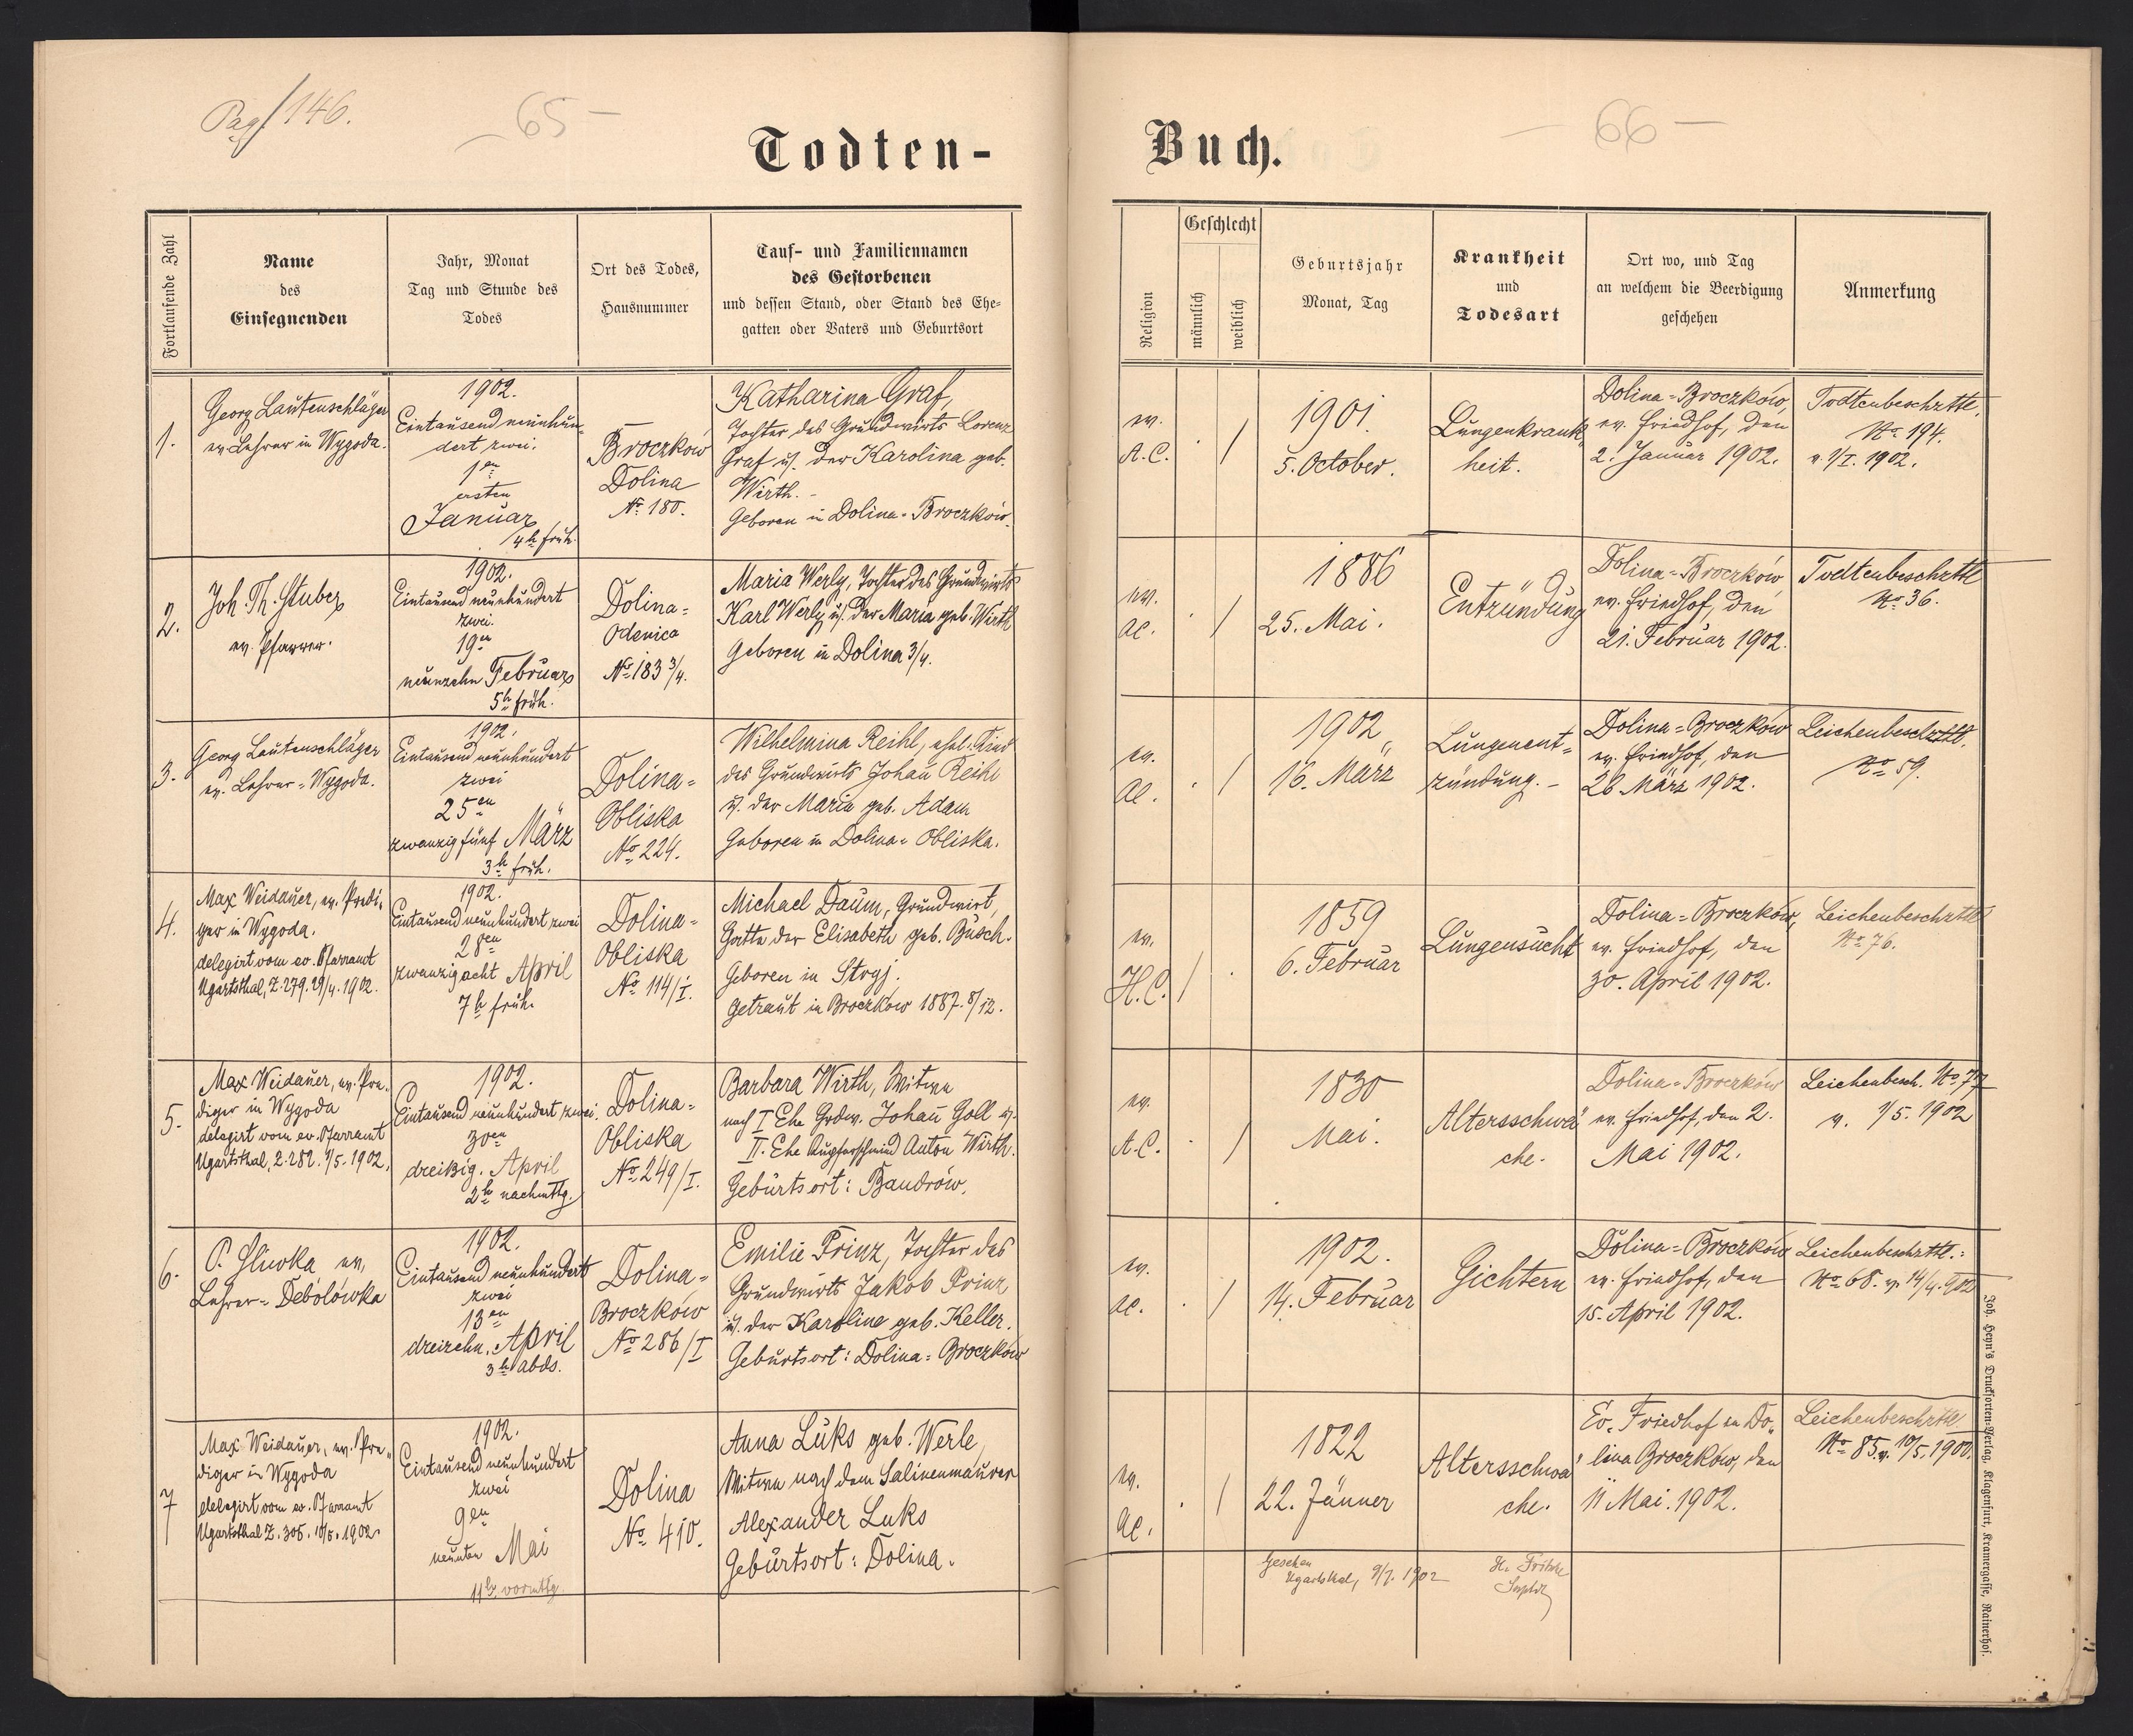 Pag. 146.
- 65 -
Todten-
Fortlaufende Zahl
Name
des
Einsegnenden
Jahr, Monat
Tag und Stunde des
Todes
Ort des Todes,
Hausnummer
Tauf- und Familiennamen
des Gestorbenen
und dessen Stand, oder Stand des Ehe-
gatten oder Vaters und Geburtsort
1.
Georg Lautenschläger
ev. Lehrer in Wygoda.
1902.
Eintausend neunhun-
dert zwei.
1en
ersten
Januar
4h früh.
Broczków
Dolina
No 180.
Katharina Graf,
Tochter des Grundwirts Lorenz
Graf u. der Karolina geb.
Wirth. -
Geboren in Dolina-Broczków.
2.
Joh. Th. Stuber
ev. Pfarrer.
1902.
Eintausend neunhundert
zwei.
19en
neunzehn Februar
5h früh.
Dolina-
Odenica
No 183 3/4.
Maria Werly, Tochter des Grundwirts
Karl Werly u. der Maria geb. Wirth
Geboren in Dolina 3/4.
3.
Georg Lautenschläger
ev. Lehrer - Wygoda.
1902.
Eintausend neunhundert
zwei
25en
zwanzig fünf März
3h früh.
Dolina-
Obliska
No 224.
Wilhelmina Reihl, ehel. Kind
des Grundwirts Johann Reihl
u. der Maria geb. Adam
Geboren in Dolina-Obliska.
4.
Max Weidauer, ev. Predi-
ger in Wygoda.
delegirt vom ev. Pfarramt
Ugartsthal, Z. 279. 29/4. 1902.
1902.
Eintausend neunhundert zwei
28en
zwanzig acht April
7h früh.
Dolina-
Obliska
No 114/I.
Michael Daum, Grundwirt,
Gatte der Elisabeth geb. Busch.
Geboren in Stryj.
Getraut in Broczków 1887. 8/12.
5.
Max Weidauer, ev. Pre-
diger in Wygoda
delegirt vom ev. Pfarramt
Ugartsthal, Z. 282. 1/5. 1902.
1902.
Eintausend neunhundert zwei.
30en
dreißig. April
2h nachmttg.
Dolina-
Obliska
No 249/I.
Barbara Wirth, Witwe
nach I Ehe Grdw. Johann Goll u.
II. Ehe Kupferschmied Anton Wirth.
Geburtsort: Bandrów.
6.
P. Sliwka ev.
Lehrer - Debolówka
1902.
Eintausend neunhundert
zwei
13en
dreizehn, April
3h abds.
Dolina-
Broczków
No 286/I
Emilie Prinz, Tochter des
Grundwirts Jakob Prinz
u. der Karoline geb. Keller.
Geburtsort: Dolina-Broczków
7
Max Weidauer, ev. Pre-
diger in Wygoda
delegirt vom ev. Pfarramt
Ugartsthal Z. 305. 10/5. 1902.
1902.
Eintausend neunhundert
zwei
9en
neunten Mai
11h vormttg.
Dolina
No 410.
Anna Luks geb. Werle,
Witwe nach dem Salinenmaurer
Alexander Luks
Geburtsort: Dolina.
Buch.
- 66 -
Religion
Geschlecht
männlich
weiblich
Geburtsjahr
Monat, Tag
Krankheit
und
Todesart
Ort wo, und Tag
an welchem die Beerdigung
geschehen
Anmerkung
ev.
A.C.
. /
1901.
5. October.
Lungenkrank
heit.
Dolina-Broczków,
ev. Friedhof, den
2. Januar 1902.
Todtenbeschrttl.
No 194.
v. 1/I. 1902.
ev.
AC.
. /
1886
25. Mai.
Entzündung
Dolina-Broczków
ev. Friedhof, den
21. Februar 1902.
Todtenbeschrttl
No 36.
ev.
AC.
. /
1902
16. März
Lungenent-
zündung. -
Dolina-Broczków
ev. Friedhof, den
26 März 1902.
Leichenbeschrttl.
No 59.
ev.
H.C.
/ .
1859
6. Februar
Lungensucht
Dolina-Broczków,
ev. Friedhof, den
30. April 1902.
Leichenbeschrttl
No 76.
ev.
A.C.
. /
1830
Mai.
Altersschwä
che.
Dolina-Broczków
ev. Friedhof, den 2.
Mai 1902.
Leichenbesch. No 77
v. 1/5. 1902
ev.
AC.
. /
1902.
14. Februar
Gichtern
Dolina-Broczków
ev. Friedhof, den
15. April 1902.
Leichenbeschrttl.:
No 68. v. 14/4. 902
ev.
AC.
. /
1822
22. Jänner
Altersschwä
che.
Ev. Friedhof in Do-
lina Broczków, den
11 Mai. 1902.
Leichenbeschrttl
No 85. v. 10/5. 1902.
Gesehen
Ugartsthal, 9/7. 1902
Suptdt
Joh. Heyn's Drucksorten-Verlag, Klagenfurt, Kramergasse, Rainerhof.